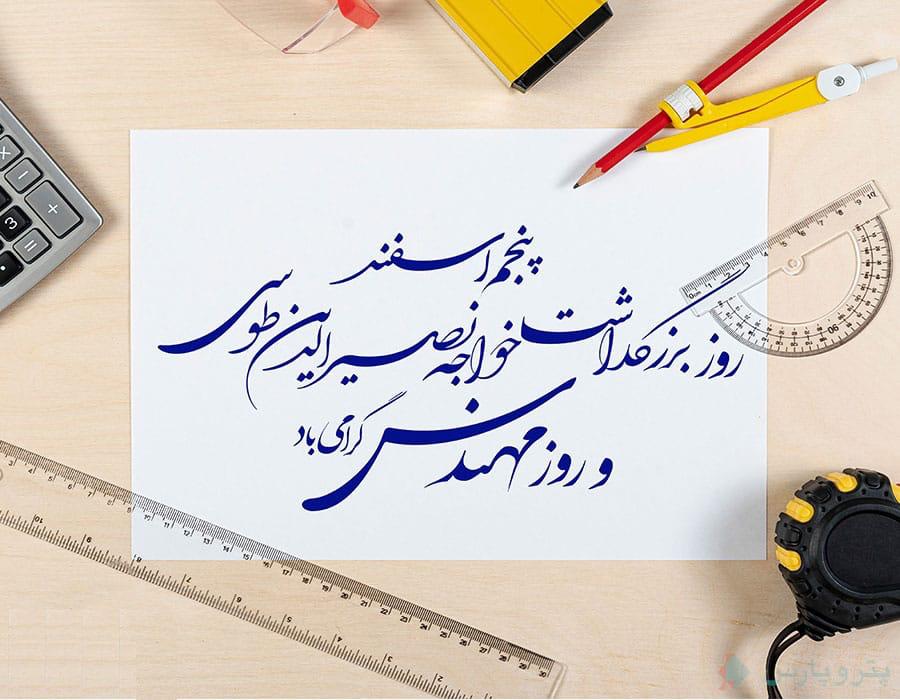 پنجم اسفند
روز بزرگداشت خواجه نصیرالدین طوسی
و روز مهندس گرامی باد
پترو پارس